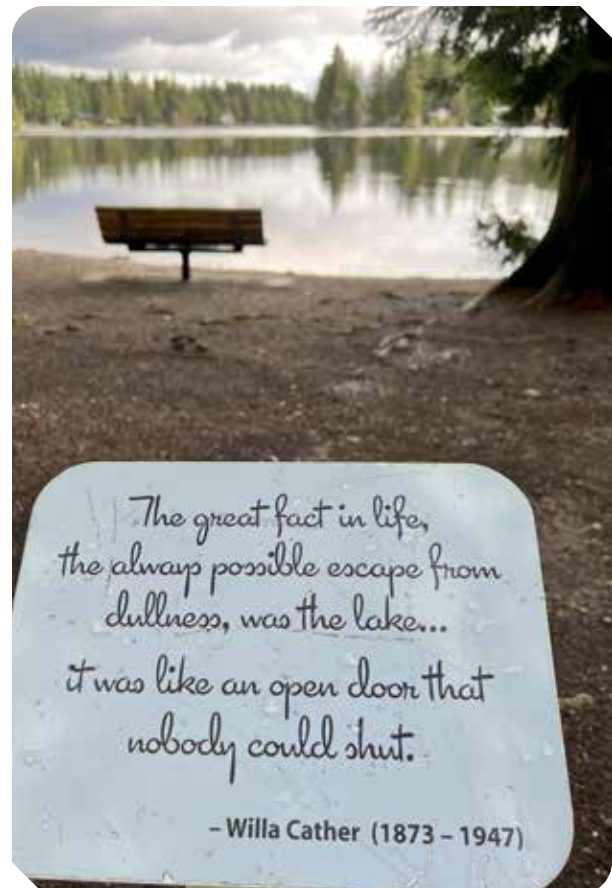 The great fact in life,
the always possible escape from
dullness, was the lake...
it was like an open door that
nobody could shut.
– Willa Cather (1873 – 1947)